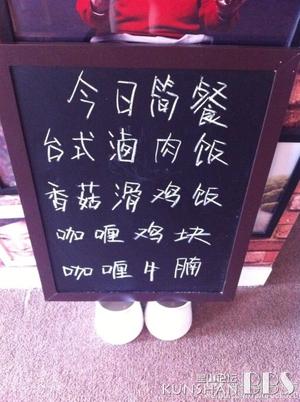 今日简餐
台式卤肉饭
香菇滑鸡饭
咖喱鸡块
咖喱牛腩
昆山论坛
KUNSHAN BBS